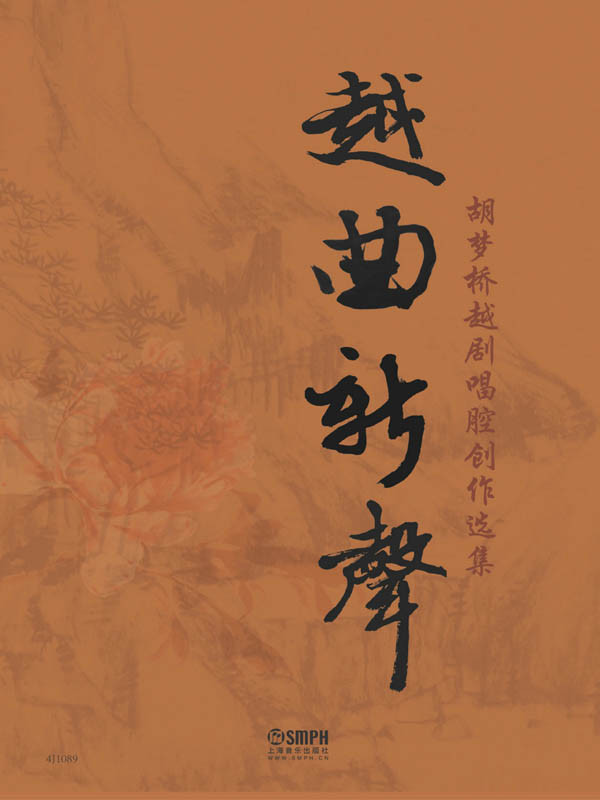 越曲新聲
胡梦桥越剧唱腔创作选集
SMPH
上海音乐出版社
WWW.SMPH.CN
4J1089